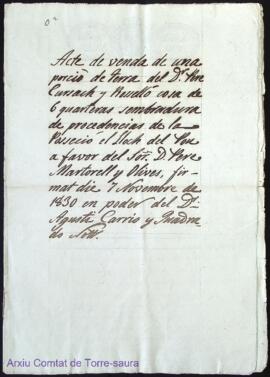 Acte de venda de una
porció de terra del Dr. Pere
Cursach y
cosa de
6 quarteras sembradura
de procedencias de la
Possecio el Lloch del Pou
a favor del Sor. D. Pere
Martorell y Olives, fir-
mat die 7 Novembre de
1830 en poder del Dr.
Agustí Carrio y Quadra-
do Nott.
Arxiu Comtat de Torre-saura